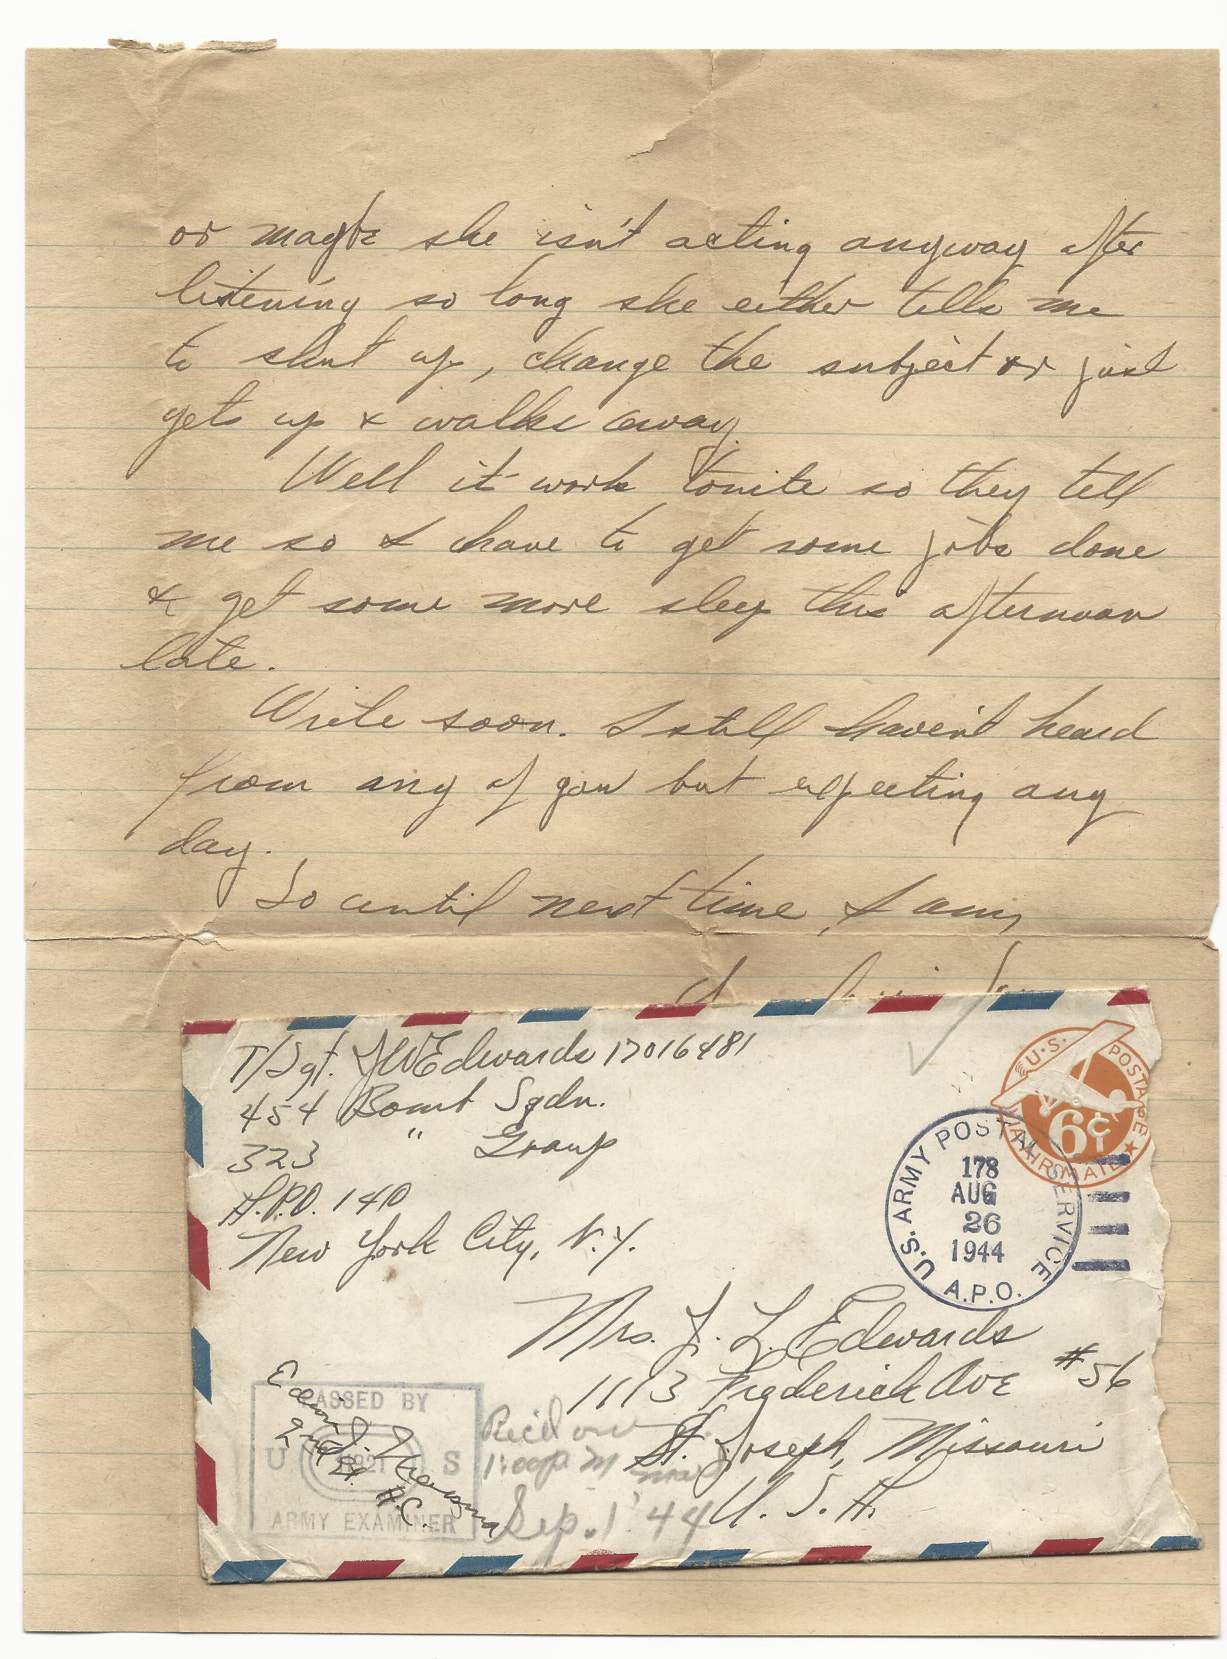 or maybe she isn't acting anyway after
listening so long she either tells me
to shut up, change the subject or just
gets up & walks away.
Well it work tonite so they tell
me so I have to get some jobs done
& get some more sleep this afternoon
late.
Write soon. I still haven't heard
from any of you but expecting any
day.
So until next time, I am,
T/Sgt. JWEdwards 17016481
454 Bomb Sqdn.
323 " Group
A.P.O. 140
New York City, N.Y.
U.S. POSTAGE
6¢
VIA AIR MAIL
U.S. ARMY POSTAL SERVICE
178
AUG
26
1944
A.P.O.
Mrs. J. L. Edwards
1113 Frederick Ave #56
St. Joseph, Missouri
U. S. A.
PASSED BY
U S
ARMY EXAMINER
2nd Lt. A.C.
Rec'd on
1:00 P.M
Sep. 1 '44